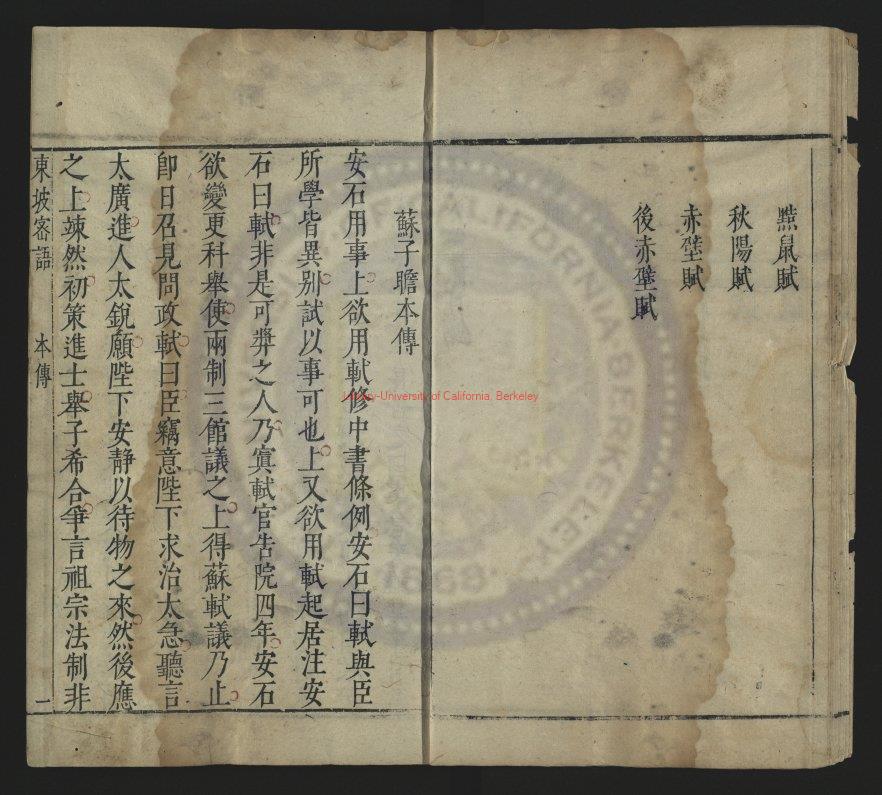 黠鼠賦
秋陽賦
赤壁賦
後赤壁賦
蘇子瞻本傳
安石用事上欲用軾修中書條例安石曰軾與臣
所學皆異别試以事可也上又欲用軾起居注安
石曰軾非是可獎之人乃寘軾官告院四年安石
欲變更科舉使兩制三館議之上得蘇軾議乃止
卽日召見問政軾曰臣竊意陛下求治太急聽言
太廣進人太銳願陛下安靜以待物之來然後應
之上竦然初策進士舉子希合爭言祖宗法制非
東坡密語 本傳 一
Library-University of California, Berkeley